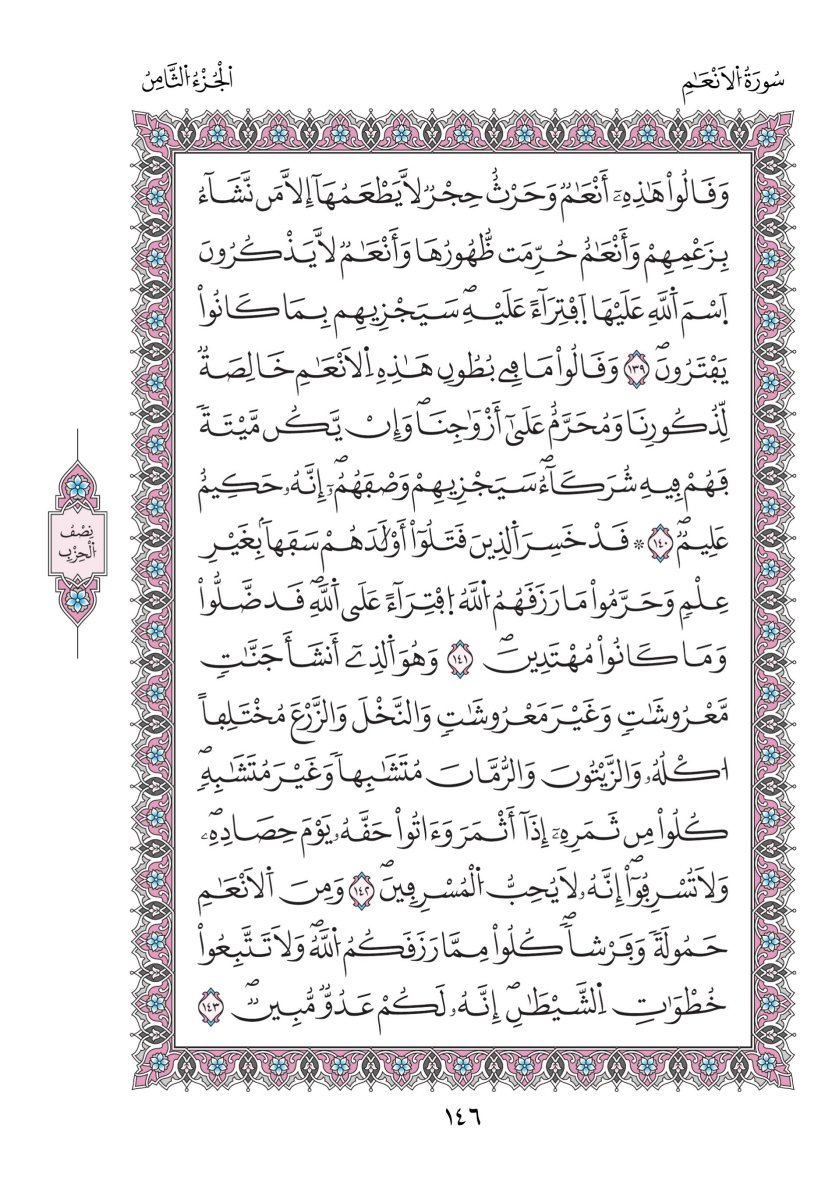 سُورَةُ الَانْعَٰمِ
الْجُزْءُ الثَّامِنُ
وَقَالُواْ هَٰذِهِۦٓ أَنْعَٰمٞ وَحَرْثٌ حِجْرٞ لَّا يَطْعَمُهَآ إِلَّا مَن نَّشَآءُ
بِزَعْمِهِمْ وَأَنْعَٰمٌ حُرِّمَت ظُّهُورُهَا وَأَنْعَٰمٞ لَّا يَذْكُرُونَ
اَسْمَ اَللَّهِ عَلَيْهَا اَفْتِرَآءً عَلَيْهِۖ سَيَجْزِيهِم بِمَا كَانُواْ
يَفْتَرُونَۖ ١٣٩ وَقَالُواْ مَا فِے بُطُونِ هَٰذِهِ اِلَانْعَٰمِ خَالِصَةٞ
لِّذُكُورِنَا وَمُحَرَّمٌ عَلَىٰٓ أَزْوَٰجِنَاۖ وَإِنْ يَّكُن مَّيْتَةٗ
فَهُمْ فِيهِ شُرَكَآءُۖ سَيَجْزِيهِمْ وَصْفَهُمُۥٓۖ إِنَّهُۥ حَكِيمٌ
عَلِيمٞۖ ١٤٠ ۞ قَدْ خَسِرَ اَلذِينَ قَتَلُوٓاْ أَوْلَٰدَهُمْ سَفَهاَۢ بِغَيْرِ
عِلْمٖ وَحَرَّمُواْ مَا رَزَقَهُمُ اُللَّهُ اُفْتِرَآءً عَلَى اَللَّهِۖ قَد ضَّلُّواْ
وَمَا كَانُواْ مُهْتَدِينَۖ ١٤١ وَهُوَ اَلذِےٓ أَنشَأَ جَنَّٰتٖ
مَّعْرُوشَٰتٖ وَغَيْرَ مَعْرُوشَٰتٖ وَالنَّخْلَ وَالزَّرْعَ مُخْتَلِفاً
اكْلُهُۥ وَالزَّيْتُونَ وَالرُّمَّانَ مُتَشَٰبِهاٗ وَغَيْرَ مُتَشَٰبِهٖۖ
كُلُواْ مِن ثَمَرِهِۦٓ إِذَآ أَثْمَرَ وَءَاتُواْ حَقَّهُۥ يَوْمَ حِصَادِهِۦۖ
وَلَا تُسْرِفُوٓاْۖ إِنَّهُۥ لَا يُحِبُّ اُلْمُسْرِفِينَۖ ١٤٢ وَمِنَ اَلَانْعَٰمِ
حَمُولَةٗ وَفَرْشاٗۖ كُلُواْ مِمَّا رَزَقَكُمُ اُللَّهُۖ وَلَا تَتَّبِعُواْ
خُطْوَٰتِ اِلشَّيْطَٰنِۖ إِنَّهُۥ لَكُمْ عَدُوّٞ مُّبِينٞۖ ١٤٣
نِصْفُ
الْحِزْبِ
١٤٦